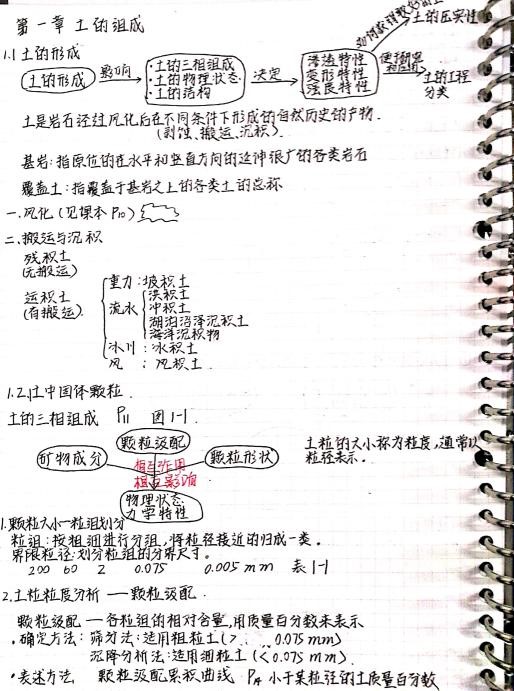 第一章 土的组成
1.1 土的形成
土的形成
影响
·土的三相组成
·土的物理状态
·土的结构
决定
渗透特性
变形特性
强度特性
土的压实性
土的工程
分类
土是岩石经过风化后在不同条件下形成的自然历史的产物.
(剥蚀、搬运、沉积).
基岩:指原位的在水平和竖直方向的延伸很广的各类岩石
覆盖土:指覆盖于基岩之上的各类土的总称
一.风化(见课本P10)
二.搬运与沉积
残积土
(无搬运)
运积土
(有搬运)
重力:坡积土
流水
洪积土
冲积土
湖泊沼泽沉积土
海洋沉积物
冰川:冰积土
风:风积土.
1.2 土中固体颗粒.
土的三相组成 P11 图1-1.
颗粒级配
矿物成分
颗粒形状
相互作用
相互影响
物理状态
力学特性
土粒的大小称为粒度,通常以
粒径表示。
1.颗粒大小—粒组划分
粒组:按粗细进行分组,将粒径接近的归成一类。
界限粒径:划分粒组的分界尺寸。
200 60 2 0.075 0.005mm 表1-1
2.土粒粒度分析——颗粒级配.
颗粒级配—各粒组的相对含量,用质量百分数来表示
·确定方法:筛分法:适用粗粒土(> 0.075mm)
沉降分析法:适用细粒土(<0.075mm).
·表述方法 颗粒级配累积曲线. 小于某粒径的土质量百分数